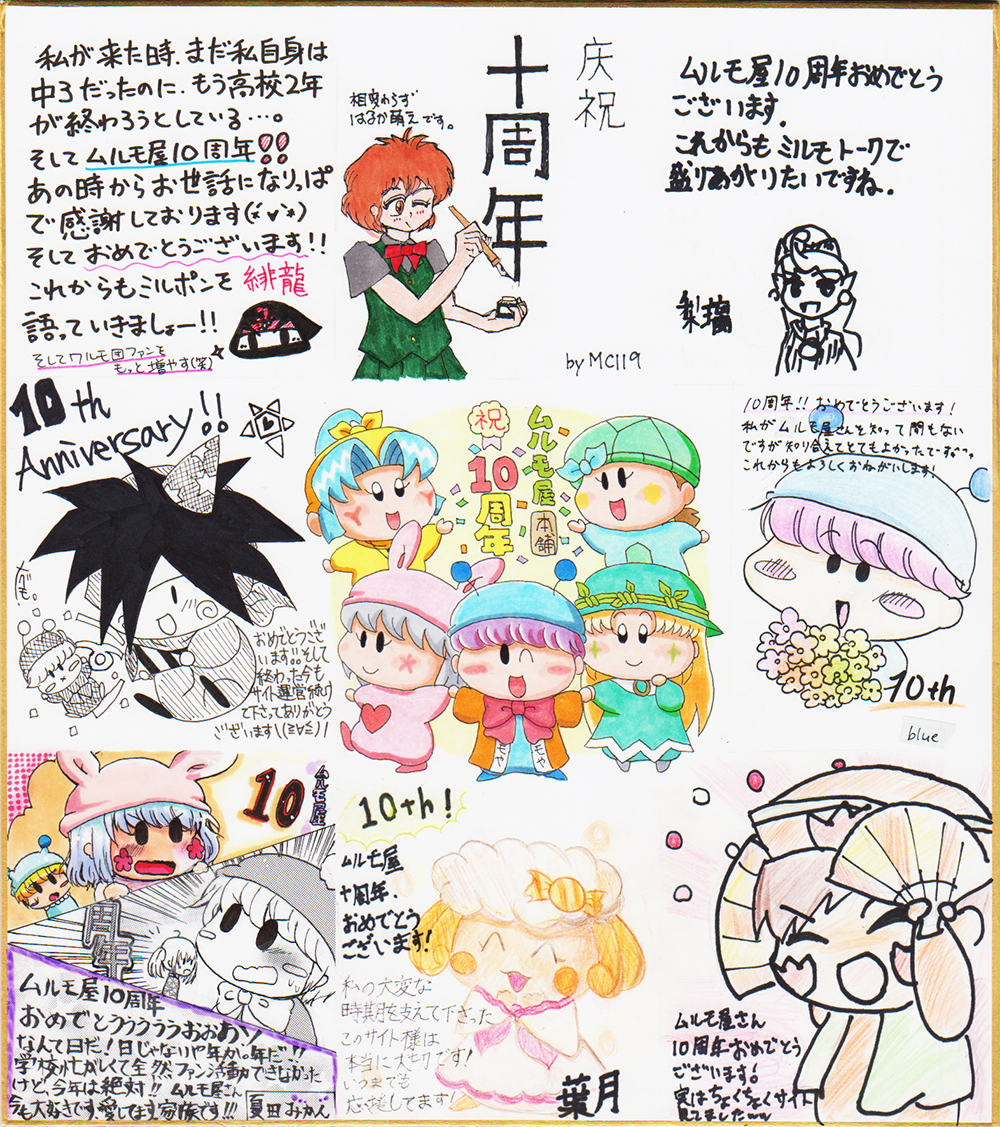 私が来た時、まだ私自身は
中3だったのに、もう高校2年
が終わろうとしている…。
そしてムルモ屋10周年!!
あの時からお世話になりっぱ
で感謝しております(*´∨`*)
そしておめでとうございます!!
これからもミルポンを 緋龍
語っていきましょー!!
そしてワルモ団ファンを
もっと増やす(笑)
相変わらず
はるか萌えです。
十周年
庆祝
by MC119
ムルモ屋10周年おめでとう
ございます.
これからもミルモトークで
盛りあがりたいですね.
梨璃
10th
Anniversary!!
おめでとうござ
います!!そして
終わった今も
サイト運営続け
て下さってありがとう
ございます\(≧∀≦)/
祝
10
周年
ムルモ屋
本舗
モや
モや
10周年!!おめでとうございます!
私がムルモ屋さんを知って間もない
ですが知り合えてとてもよかったですo
これからもよろしくおねがいします!
10th
blue
10
ムルモ屋
周年
ムルモ屋10周年
おめでとうぅうううおおおァッ
なんて日だ!日じゃないや年か。年だ!!
学校忙がしくて全然ファン活動できなかった
けど今年は絶対!!ムルモ屋さん
今も大好きです愛してます家族です!!!
夏田みかん
10th!
ムルモ屋
十周年.
おめでとう
ございます!
私の大変な
時期を支えて下さった
このサイト様は
本当に大切です!
いつまでも
応援してます!
葉月
ムルモ屋さん
10周年おめでとう
ございます!
実はちょくちょくサイト
見てましたww